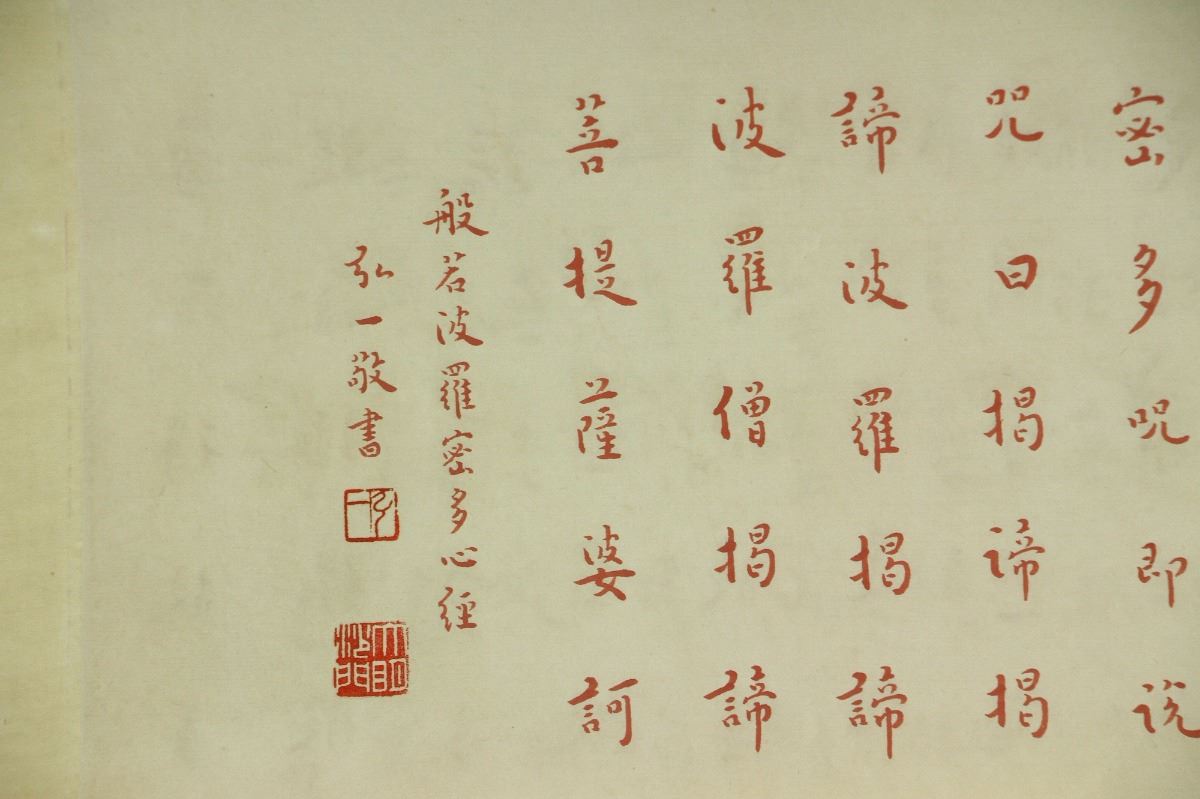 密多呪即说
咒曰揭谛揭
諦波羅揭諦
波羅僧揭諦
菩提薩婆訶
般若波羅密多心經
弘一敬書
弘一
大明沙門